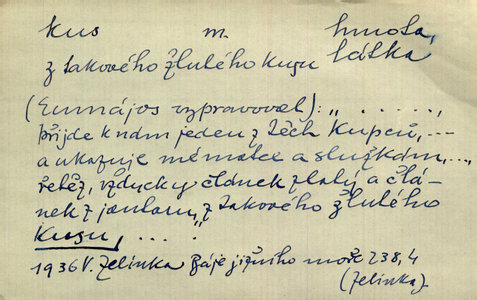 kus m. hmota,
z takového žlutého kusu látka
(Eumájos vypravoval): „ . . . . . ,
přijde k nám jeden z těch kupců, ---
a ukazuje mé matce a služkám, ...,
řetěz, vždycky článek zlatý a člá-
nek z jantaru, z takového žlutého
kusu, . . . . “
1936 V. Zelinka Báje jižního moře 238, 4
(Zelinka).